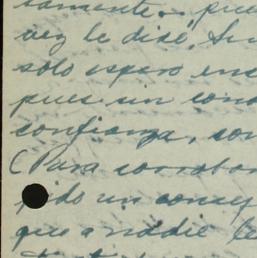 tamente. pue
vez le dise, Su
solo espero en
pues sin cono
confianza, con
(Para corrobor
pido un consej
que a nadie le